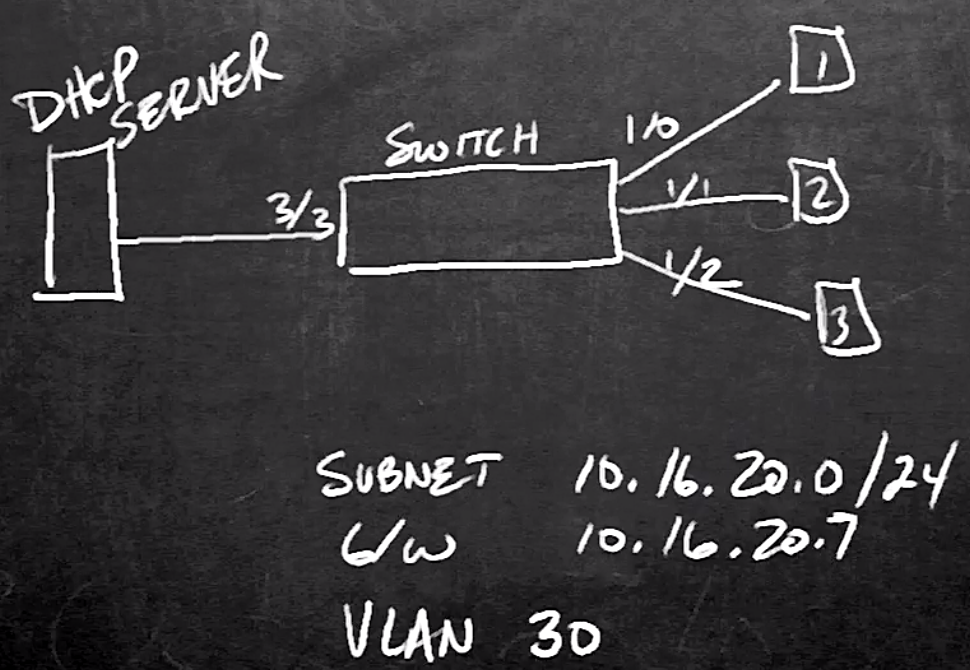 DHCP
SERVER
SWITCH
3/3
1/0
1/1
1/2
1
2
3
SUBNET 10.16.20.0/24
G/W 10.16.20.7
VLAN 30